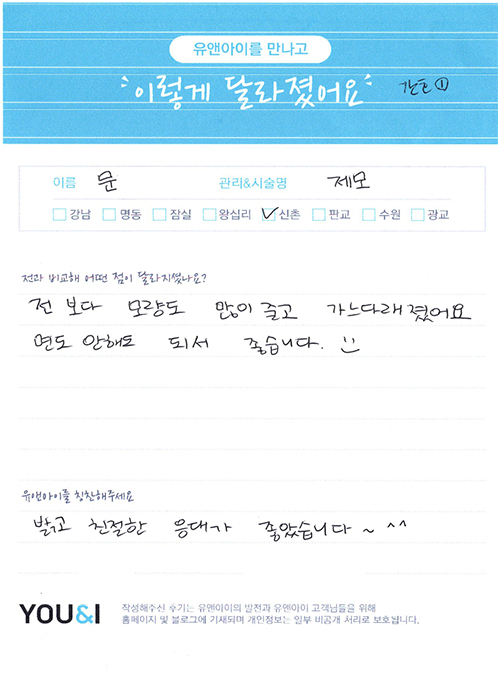 유앤아이를 만나고
이렇게 달라졌어요
이름 문 관리&시술명 제모
강남 명동 잠실 왕십리 신촌 판교 수원 광교
전과 비교해 어떤 점이 달라지셨나요?
전 보다 모량도 많이 줄고 가느다래졌어요
면도 안해도 되서 좋습니다. :)
유앤아이를 칭찬해주세요
밝고 친절한 응대가 좋았습니다~ ^^
YOU&I
작성해주신 후기는 유앤아이의 발전과 유앤아이 고객님들을 위해
홈페이지 및 블로그에 기재되며 개인정보는 일부 비공개 처리로 보호됩니다.